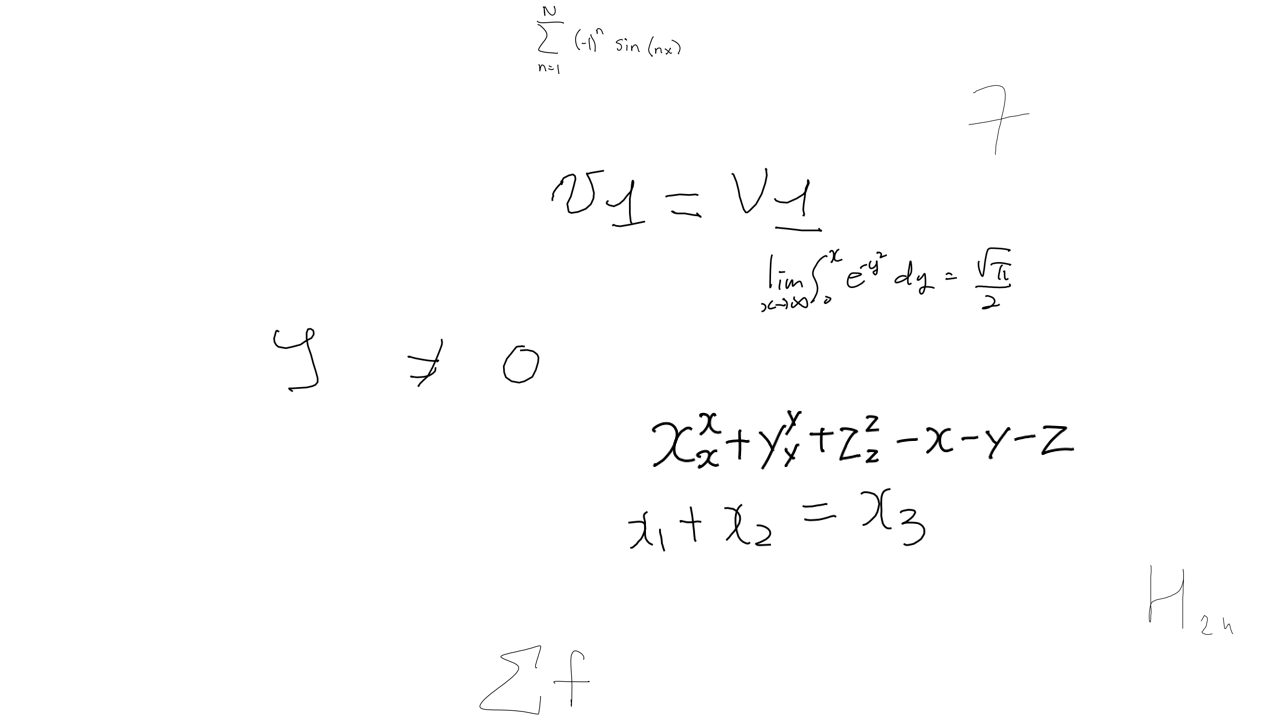 \sum_{n=1}^{N} (-1)^n \sin(nx)
7
v\underline{1} = v\underline{1}
\lim_{x \to \infty} \int_0^x e^{-y^2} dy = \frac{\sqrt{\pi}}{2}
y \neq 0
x_x^x + y_y^y + z_z^z - x - y - z
x_1 + x_2 = x_3
H_{2n}
\sum f